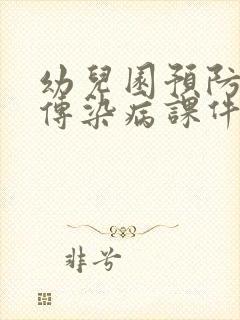 幼兒園預防
傳染病課件
非兮